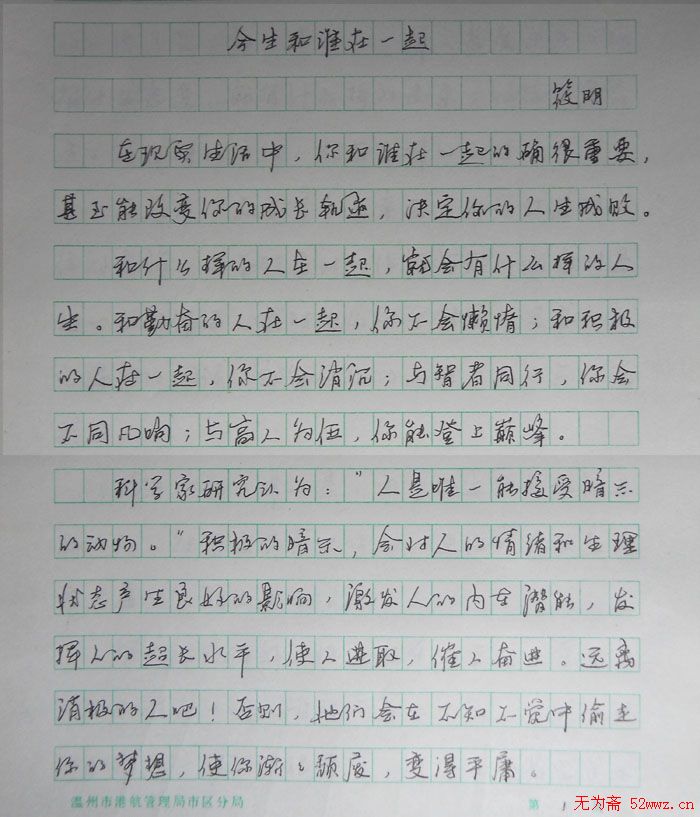 今生和谁在一起
筱明
在现实生活中，你和谁在一起的确很重要，
甚至能改变你的成长轨迹，决定你的人生成败。
和什么样的人在一起，就会有什么样的人
生。和勤奋的人在一起，你不会懒惰；和积极
的人在一起，你不会消沉；与智者同行，你会
不同凡响；与高人为伍，你能登上巅峰。
科学家研究认为：“人是唯一能接受暗示
的动物。”积极的暗示，会对人的情绪和生理
状态产生良好的影响，激发人的内在潜能，发
挥人的超长水平，使人进取，催人奋进。远离
消极的人吧！否则，他们会在不知不觉中偷走
你的梦想，使你渐渐颓废，变得平庸。
温州市港航管理局市区分局
第 1
无为斋 52wwz.cn